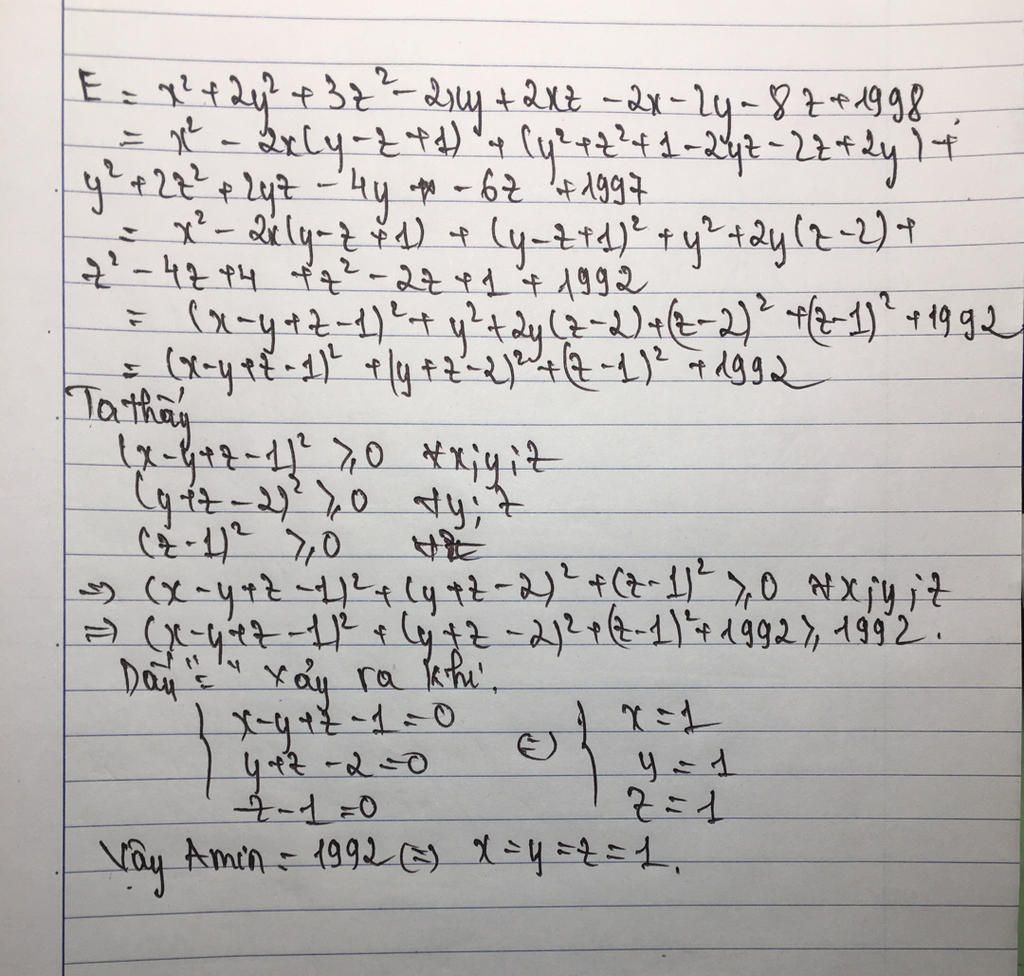 E = x² + 2y² + 3z² - 2xy + 2xz - 2x - 2y - 8z + 1998
= x² - 2x(y - z + 1) + (y² + z² + 1 - 2yz - 2z + 2y) +
y² + 2z² + 2yz - 4y - 6z + 1997
= x² - 2x(y - z + 1) + (y - z + 1)² + y² + 2y(z - 2) +
z² - 4z + 4 + z² - 2z + 1 + 1992
= (x - y + z - 1)² + y² + 2y(z - 2) + (z - 2)² + (z - 1)² + 1992
= (x - y + z - 1)² + (y + z - 2)² + (z - 1)² + 1992
Ta thấy
(x - y + z - 1)² ≥ 0 ∀x; y; z
(y + z - 2)² ≥ 0 ∀y; z
(z - 1)² ≥ 0 ∀z
⇒ (x - y + z - 1)² + (y + z - 2)² + (z - 1)² ≥ 0 ∀x; y; z
⇒ (x - y + z - 1)² + (y + z - 2)² + (z - 1)² + 1992 ≥ 1992.
Dấu "=" xảy ra khi.
x - y + z - 1 = 0 x = 1
y + z - 2 = 0 ⇔ y = 1
z - 1 = 0 z = 1
Vậy Amin = 1992 ⇔ x = y = z = 1.